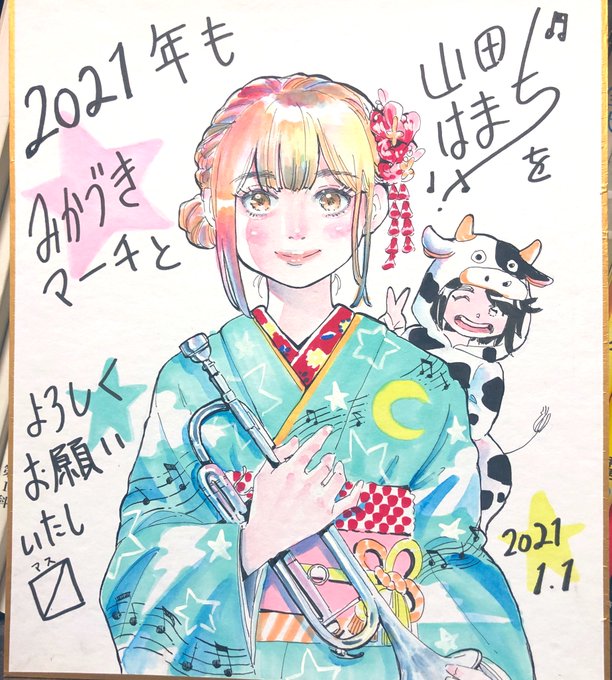 2021年も
みかづき
マーチと
山田
はまち
を
よろしく
お願い
いたし
マス
〼
2021
1.1